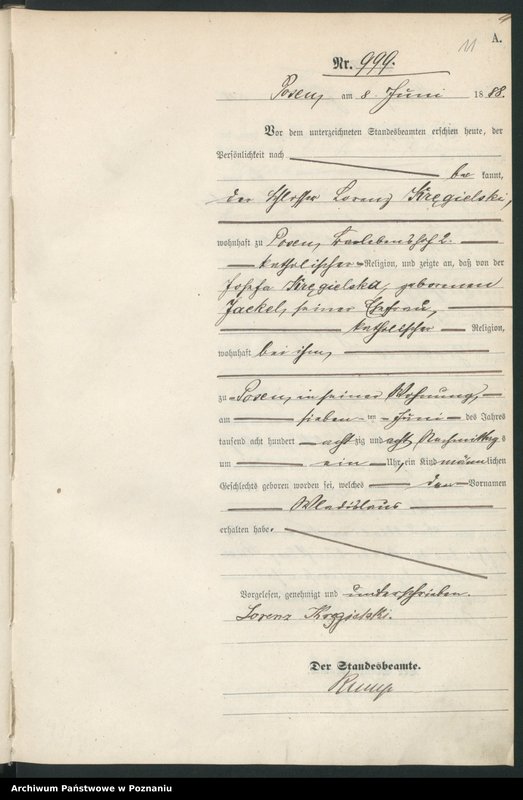 11
A.
Nr. 999.
Posen, am 8. Juni 1888.
Vor dem unterzeichneten Standesbeamten erschien heute, der
Persönlichkeit nach
bekannt,
der Schlosser Lorenz Kręgielski,
wohnhaft zu Posen, 2.
katholischer Religion, und zeigte an, daß von der
Josefa Kręgielska, geborenen
Jaeckel, seiner Ehefrau,
katholischer Religion,
wohnhaft bei ihm,
zu Posen, in seiner Wohnung,
am sieben ten Juni des Jahres
tausend acht hundert achtzig und acht Nachmittags
um ein Uhr, ein Kind männlichen
Geschlechts geboren worden sei, welches den Vornamen
Wladislaus
erhalten habe.
Vorgelesen, genehmigt und unterschrieben.
Lorenz
Der Standesbeamte.
Archiwum Państwowe w Poznaniu